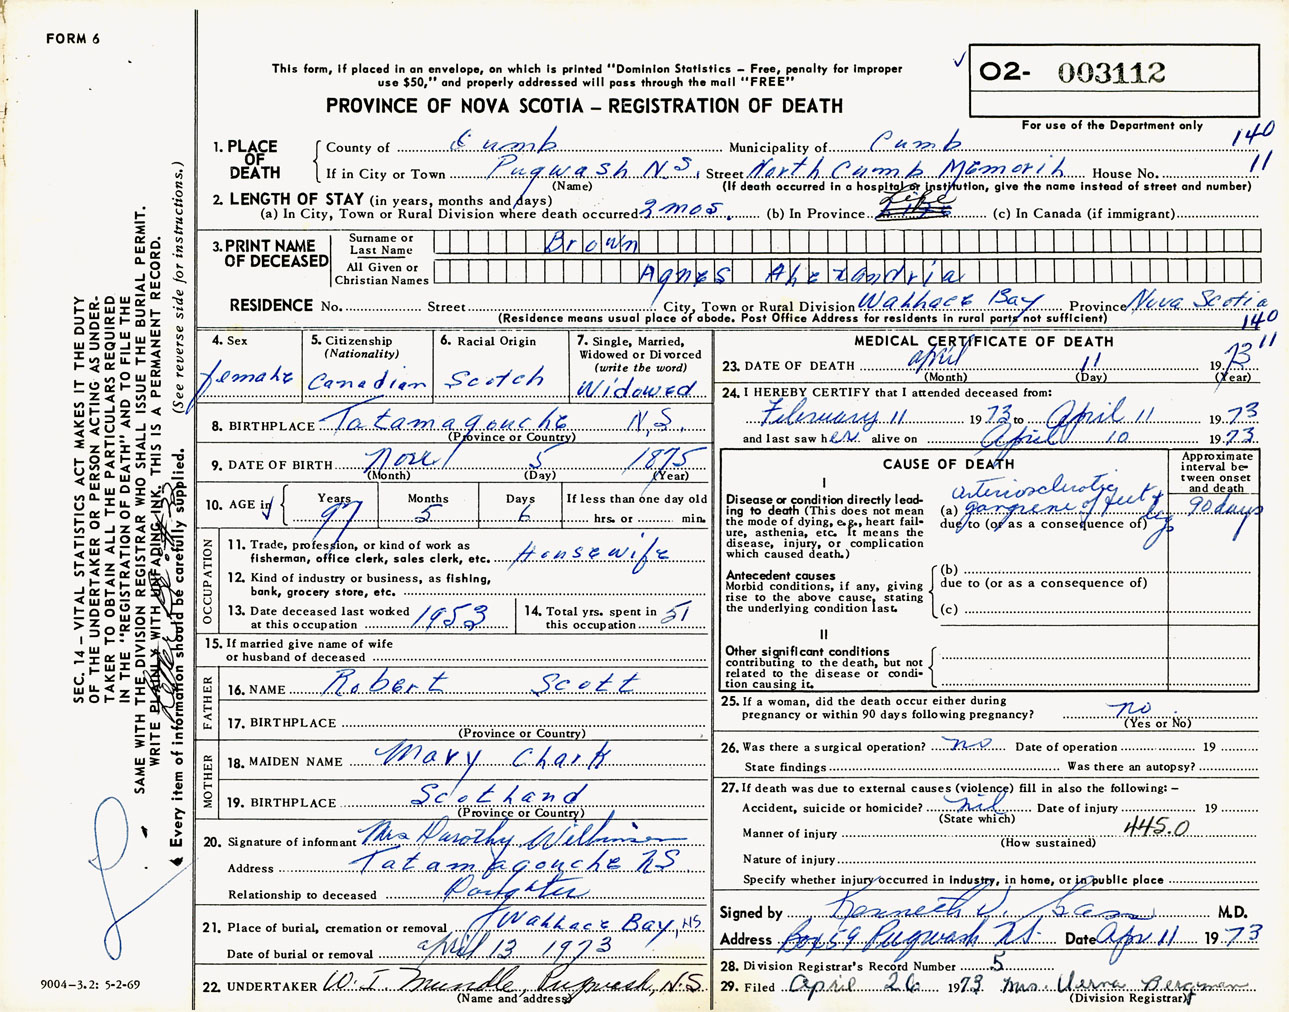 FORM 6
This form, if placed in an envelope, on which is printed "Dominion Statistics – Free, penalty for improper
use $50," and properly addressed will pass through the mail "FREE"
PROVINCE OF NOVA SCOTIA – REGISTRATION OF DEATH
O2- 003112
For use of the Department only
140
11
1. PLACE OF DEATH
County of Cumb Municipality of Cumb
If in City or Town Pugwash N.S. Street North Cumb Memoril House No.
(Name) (If death occurred in a hospital or institution, give the name instead of street and number)
2. LENGTH OF STAY (in years, months and days)
(a) In City, Town or Rural Division where death occurred 2 mos. (b) In Province Life (c) In Canada (if immigrant)
3. PRINT NAME OF DECEASED
Surname or Last Name Brown
All Given or Christian Names Agnes Alexandria
RESIDENCE No. Street City, Town or Rural Division Wallace Bay Province Nova Scotia
(Residence means usual place of abode. Post Office Address for residents in rural parts not sufficient)
140
11
4. Sex female
5. Citizenship (Nationality) Canadian
6. Racial Origin Scotch
7. Single, Married, Widowed or Divorced (write the word) Widowed
8. BIRTHPLACE Tatamagouche N.S.
(Province or Country)
9. DATE OF BIRTH Nov 5 1875
(Month) (Day) (Year)
10. AGE in Years 97 Months 5 Days 6 If less than one day old hrs. or min.
OCCUPATION
11. Trade, profession, or kind of work as
fisherman, office clerk, sales clerk, etc. Housewife
12. Kind of industry or business, as fishing,
bank, grocery store, etc.
13. Date deceased last worked
at this occupation 1953
14. Total yrs. spent in
this occupation 51
15. If married give name of wife
or husband of deceased
FATHER
16. NAME Robert Scott
17. BIRTHPLACE
(Province or Country)
MOTHER
18. MAIDEN NAME Mary Clark
19. BIRTHPLACE Scotland
(Province or Country)
20. Signature of informant Mrs Dorothy
Address Tatamagouche NS
Relationship to deceased Daughter
21. Place of burial, cremation or removal Wallace Bay, NS
Date of burial or removal april 13 1973
22. UNDERTAKER W. I. Mundle, Pugwash, N.S.
(Name and address)
MEDICAL CERTIFICATE OF DEATH
23. DATE OF DEATH april 11 1973
(Month) (Day) (Year)
24. I HEREBY CERTIFY that I attended deceased from:
February 11 1973 to April 11 1973
and last saw her alive on April 10 1973
CAUSE OF DEATH
Approximate interval between onset and death
I
Disease or condition directly leading to death (This does not mean the mode of dying, e.g., heart failure, asthenia, etc. It means the disease, injury, or complication which caused death.)
(a) arteriosclerotic gangrene of feet & legs 90 days
due to (or as a consequence of)
Antecedent causes
Morbid conditions, if any, giving rise to the above cause, stating the underlying condition last.
(b)
due to (or as a consequence of)
(c)
II
Other significant conditions
contributing to the death, but not related to the disease or condition causing it.
25. If a woman, did the death occur either during
pregnancy or within 90 days following pregnancy? no
(Yes or No)
26. Was there a surgical operation? no Date of operation 19
State findings Was there an autopsy?
27. If death was due to external causes (violence) fill in also the following: –
Accident, suicide or homicide? nil Date of injury 19
(State which)
445.0
Manner of injury
(How sustained)
Nature of injury
Specify whether injury occurred in industry, in home, or in public place
Signed by Kenneth M.D.
Address Box 59 Pugwash N.S. Date Apr 11 1973
28. Division Registrar's Record Number 5
29. Filed April 26 1973 Mrs. Verna Bergman
(Division Registrar)
SEC. 14 – VITAL STATISTICS ACT MAKES IT THE DUTY
OF THE UNDERTAKER OR PERSON ACTING AS UNDER-
TAKER TO OBTAIN ALL THE PARTICULARS REQUIRED
IN THE "REGISTRATION OF DEATH" AND TO FILE THE
SAME WITH THE DIVISION REGISTRAR WHO SHALL ISSUE THE BURIAL PERMIT.
WRITE PLAINLY WITH UNFADING INK. THIS IS A PERMANENT RECORD.
Every item of information should be carefully supplied. (See reverse side for instructions.)
9004-3.2: 5-2-69